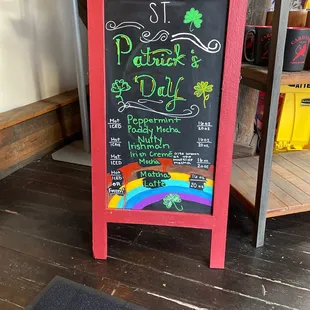 ST.
Patrick's
Day
Hot
ICED
Peppermint
Paddy Mocha
16 oz
20 oz
Hot
ICED
Nutty
Irishman
16 oz
20 oz
Hot
ICED
Irish Creme
Mocha
16 oz
20 oz
Hot
ICED
Matcha
Latte
16 oz
20 oz